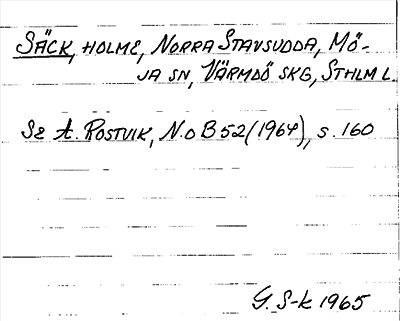 SÄCK, HOLME, NORRA STAVSUDDA, MÖ-
JA SN, VÄRMDÖ SKG, STHLM L.
Se A. ROSTVIK, N.o B 52 (1964), s. 160
G. S-k 1965